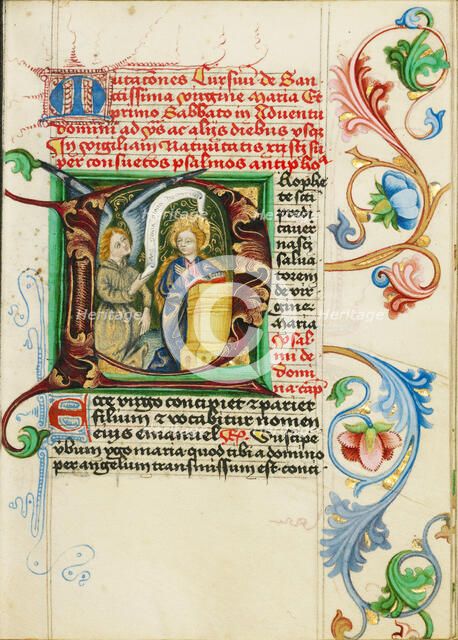 Mutationes Cursivi de San
ctissima virgine maria Et
primo Sabbato in Aduentu
domini ad vs ac alijs diebus vsqz
In vigiliam Natiuitatis xpisti sit
per consuetos psalmos antipho
Prophe
te scti
predi
cauer
nasci
salua
torem
de vir
gine
maria
psal
mi de
domi
na cap
Ecce virgo concipiet et pariet
filium et vocabitur nomen
eius Emanuel Suscipe
verbum virgo maria quod tibi a domino
per angelum transmissum est conci
Heritage